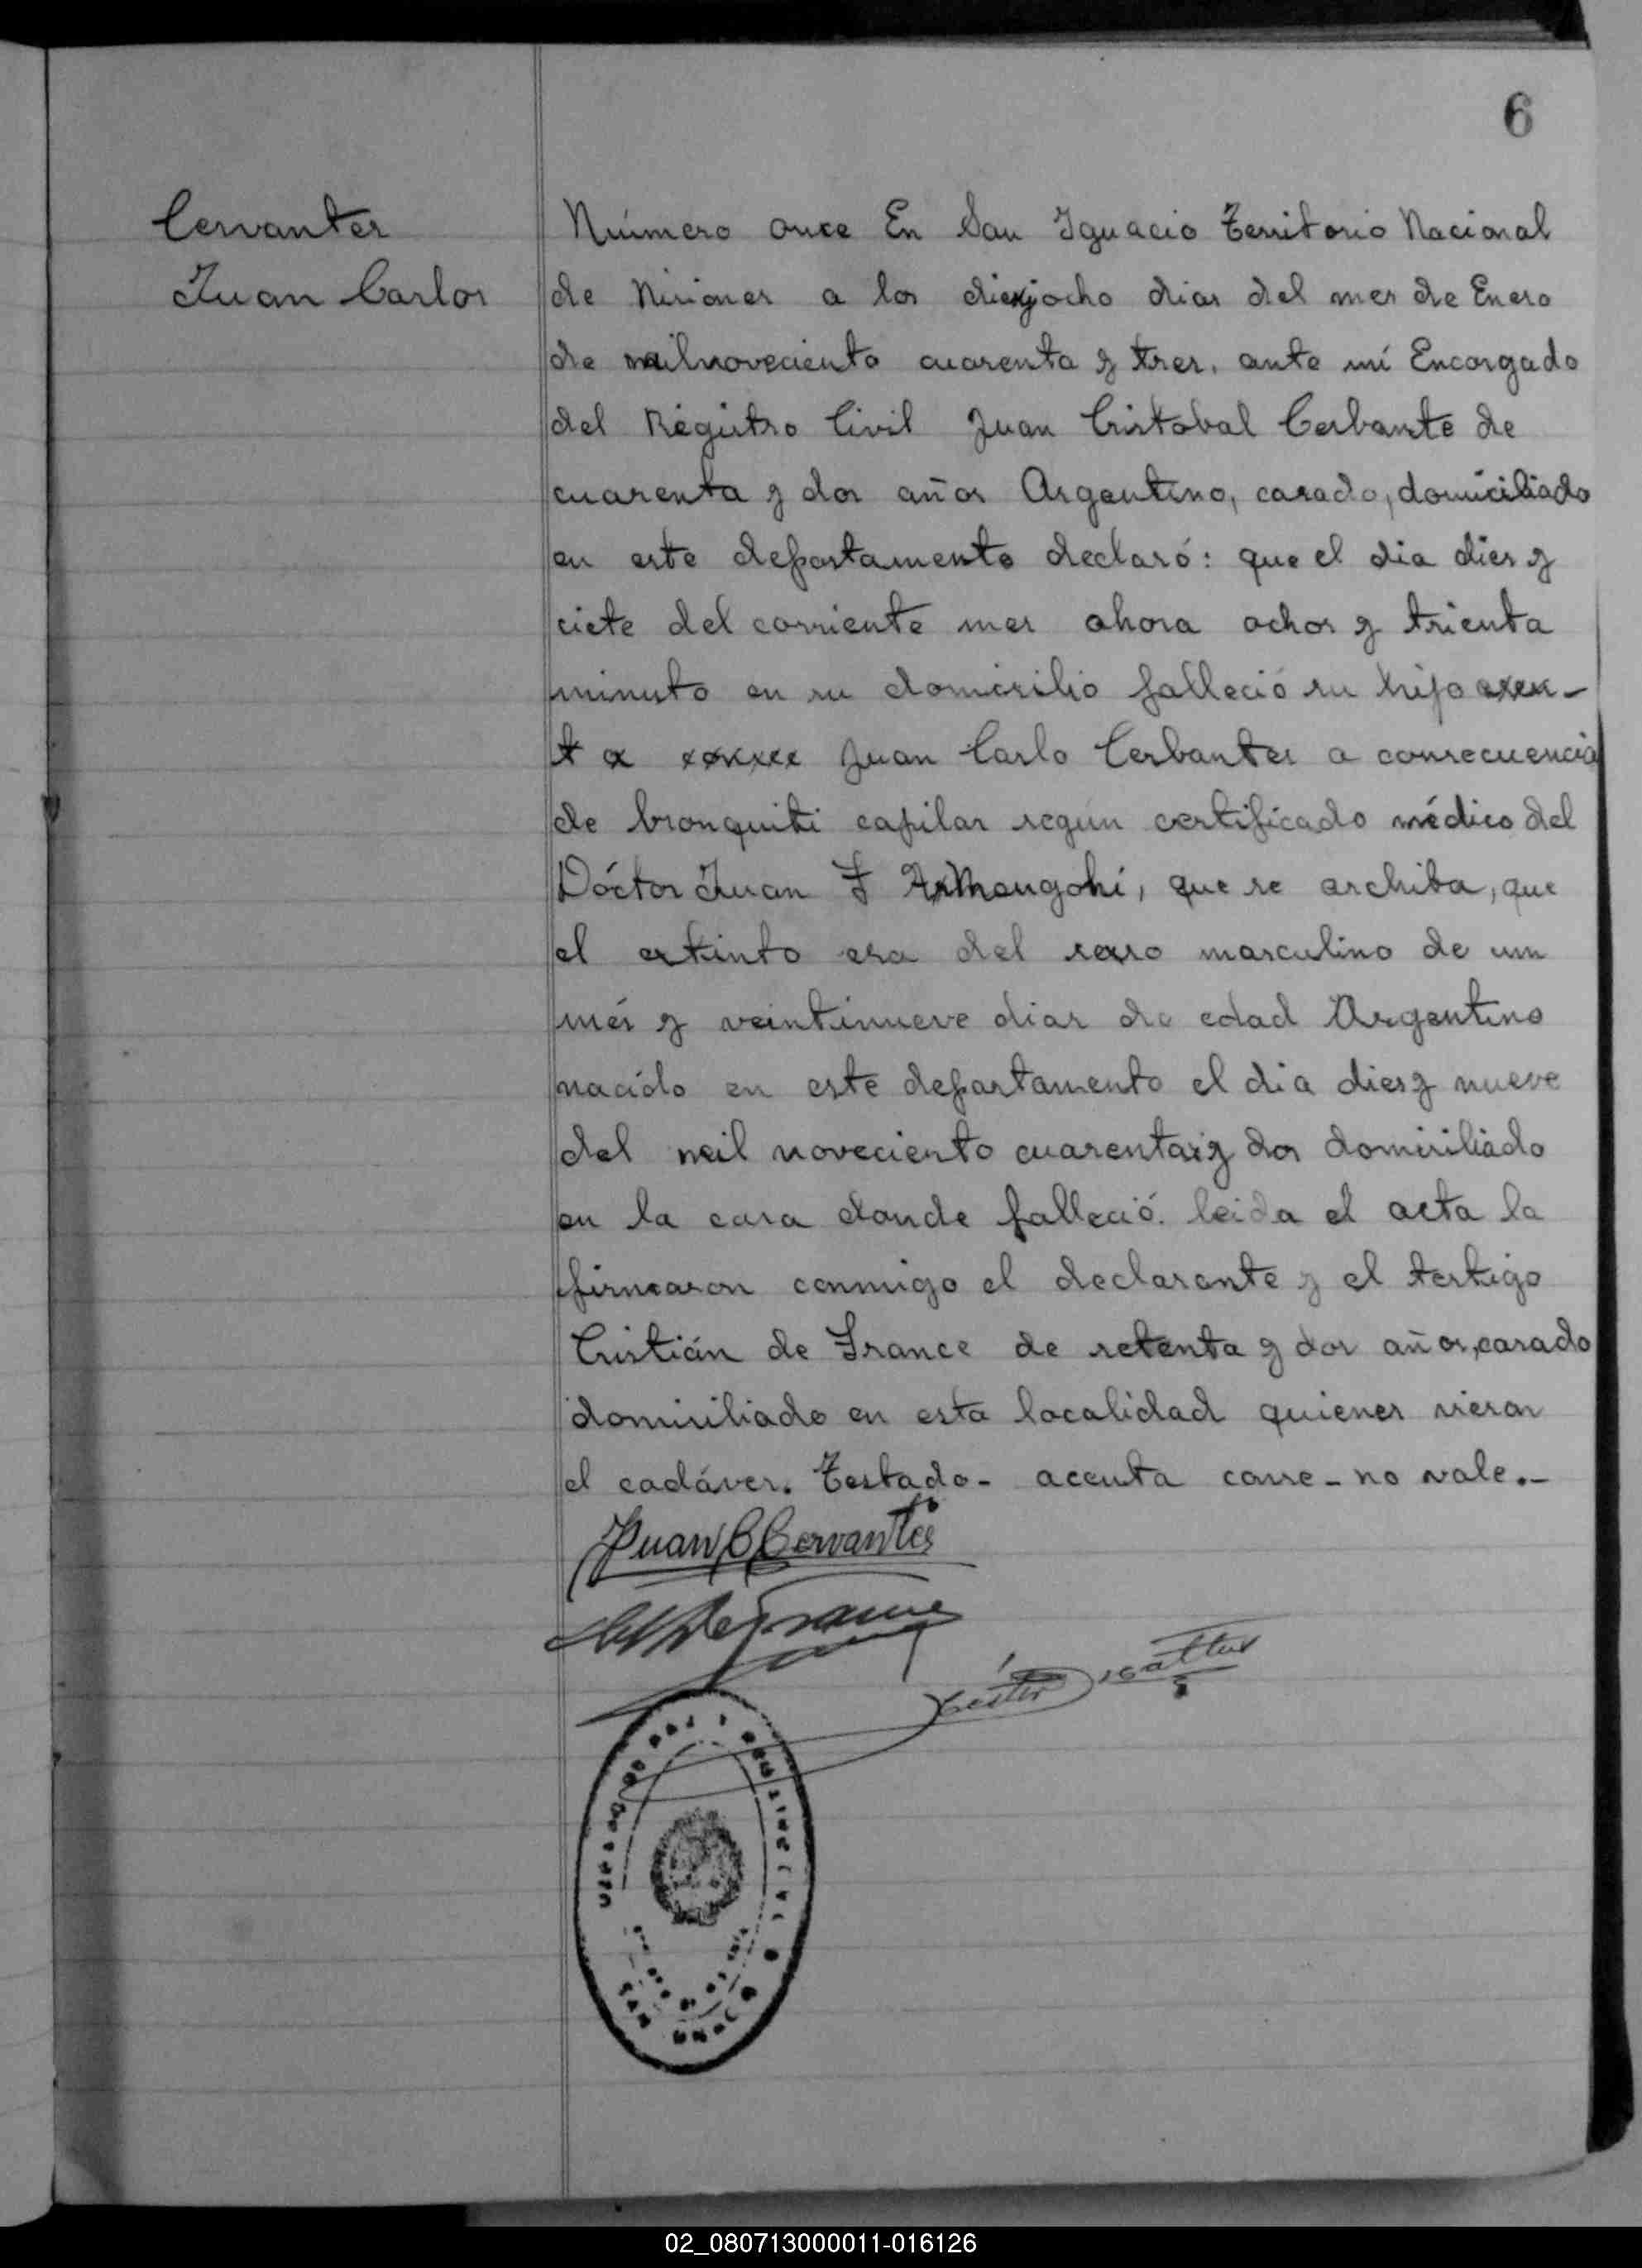 6
Cervantes
Juan Carlos
Número once En San Ignacio Territorio Nacional
de Misiones a los diezyocho dias del mes de Enero
de milnoveciento cuarenta y tres, ante mí Encargado
del Registro Civil Juan Cristobal Cerbante de
cuarenta y dos años Argentino, casado, domiciliado
en este departamento declaró: que el dia dies y
ciete del corriente mes ahora ochos y trienta
minuto en su domisilio falleció su hijo
Juan Carlo Cerbantes a consecuencia
de bronquiti capilar según certificado médico del
Dóctor Juan F que se archiba, que
el extinto era del sexso masculino de un
més y veintinueve dias de edad Argentino
nacido en este departamento el dia diesy nueve
del mil noveciento cuarentaiy dos domisiliado
en la casa donde falleció. leida el acta la
firmaron conmigo el declarante y el testigo
Cristián de France de setenta y dos años, casado
domisiliado en esta localidad quienes vieron
el cadáver. Testado - acenta conse - no vale.-
Juan C Cervantes
02_080713000011-016126